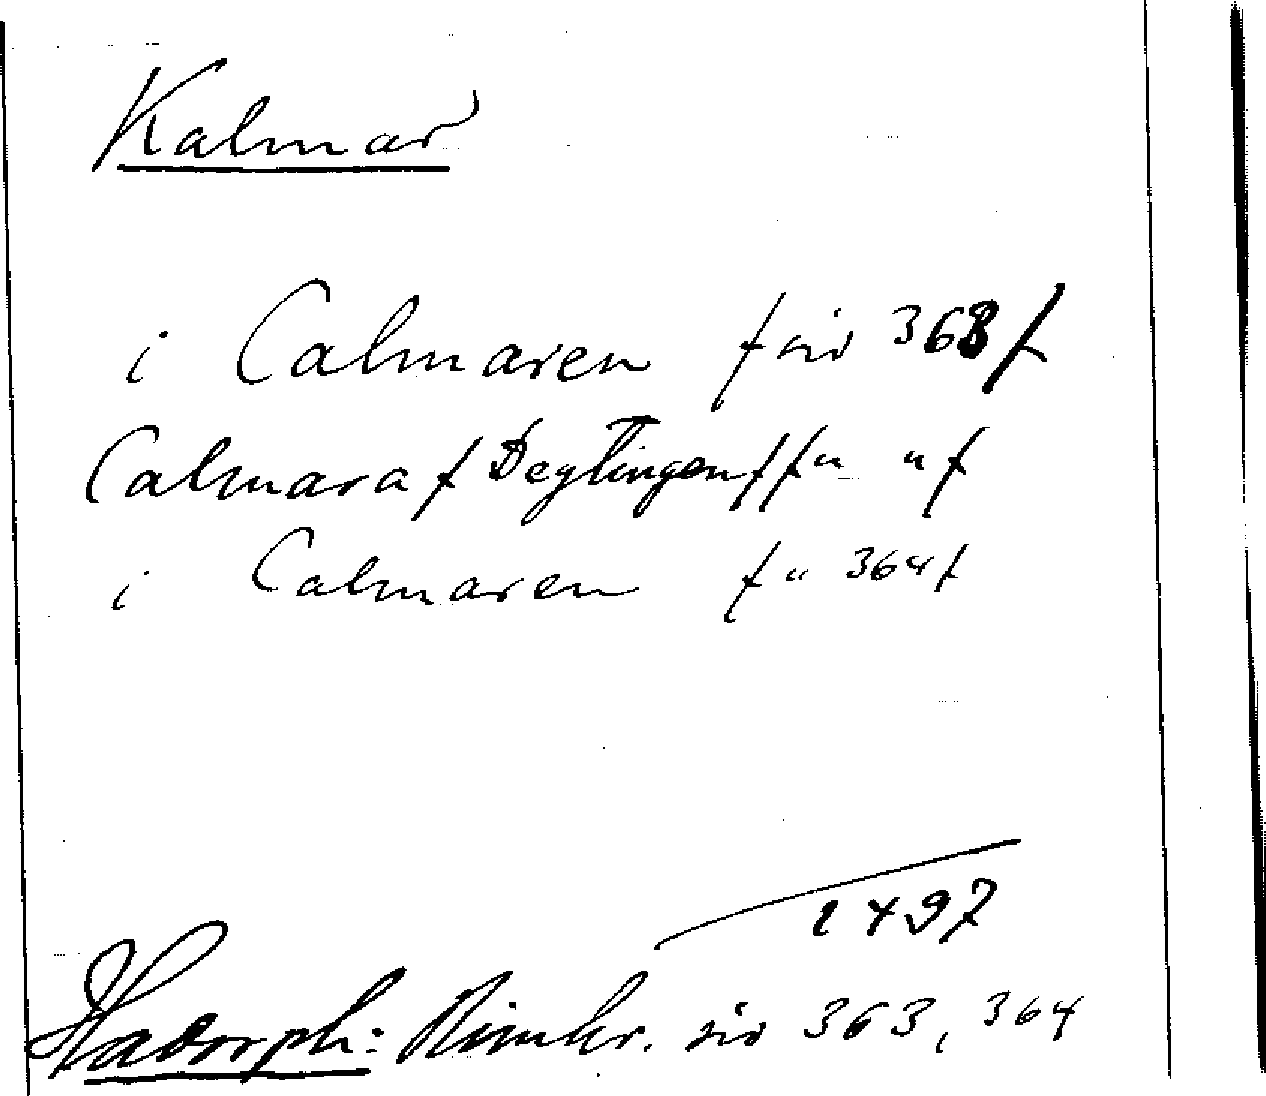 Kalmar
i Calmaren / sid 363 /
Calmara / Deglingen / / " " /
i Calmaren / " 364 /
1497
Hadorph: Rimkr. sid 363, 364